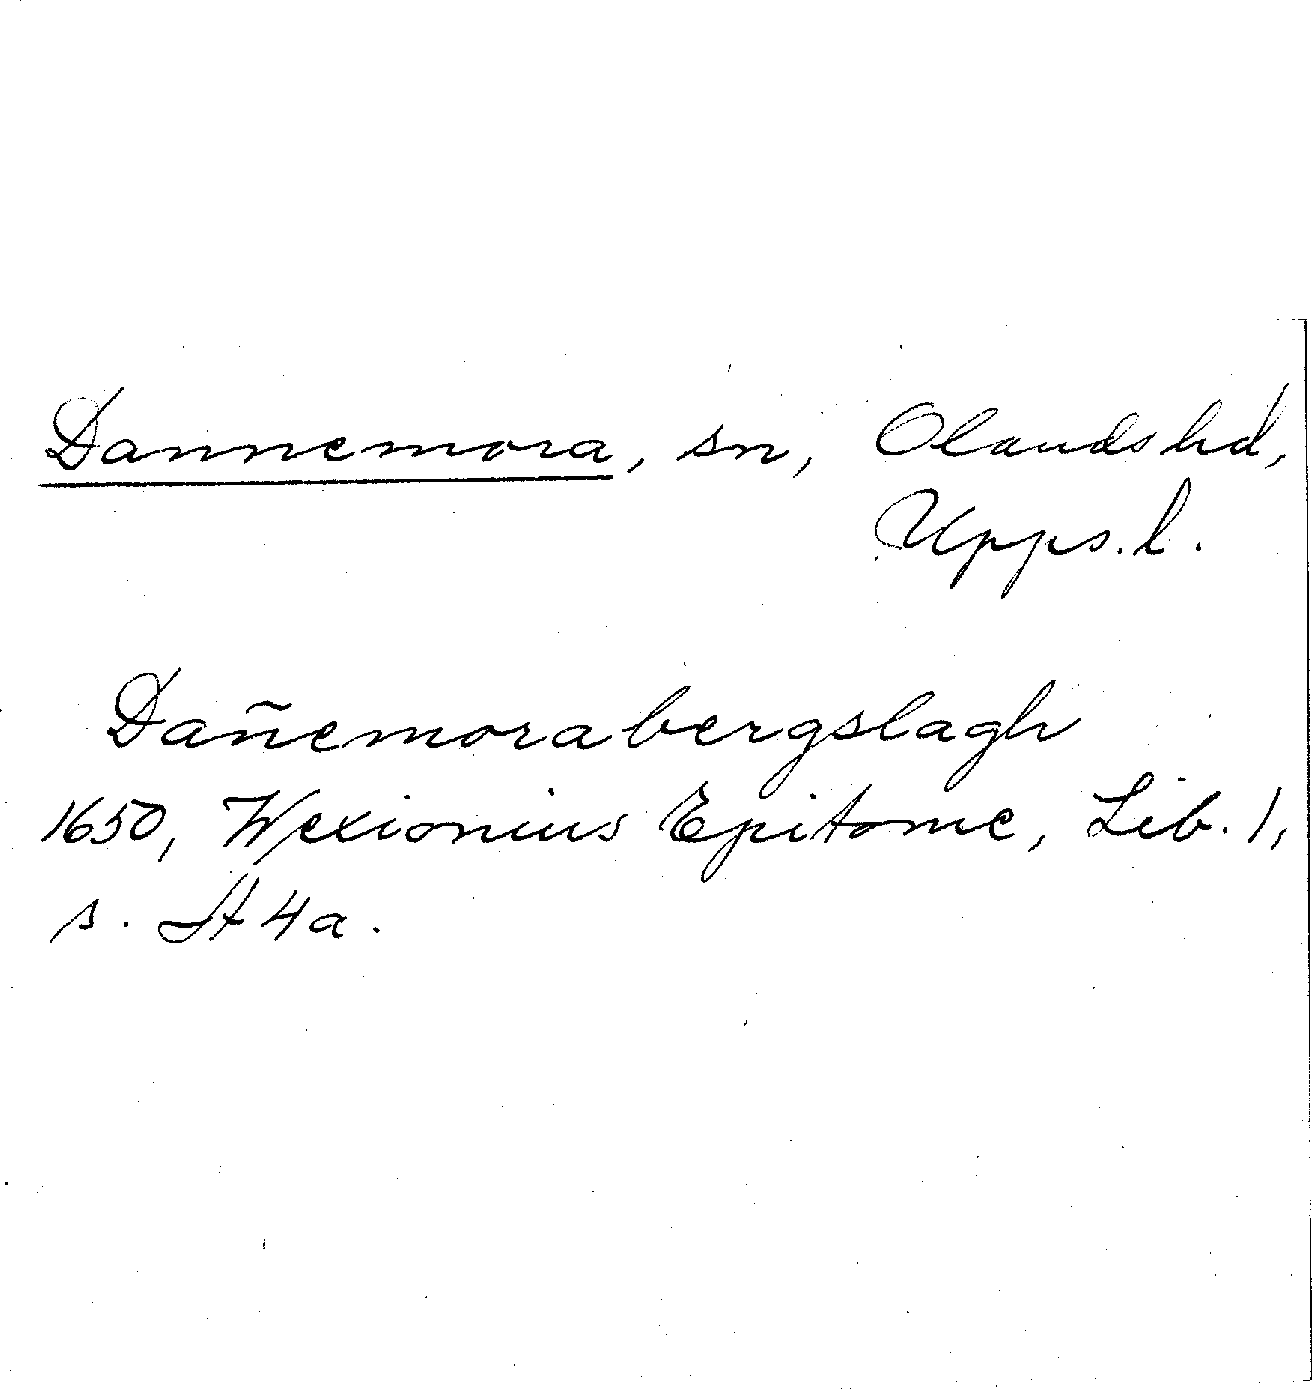 Dannemora, sn, Olands hd,
Upps. l.
Dañemorabergslagh
1650, Wexionius Epitome, Lib. 1,
s. A 4a.